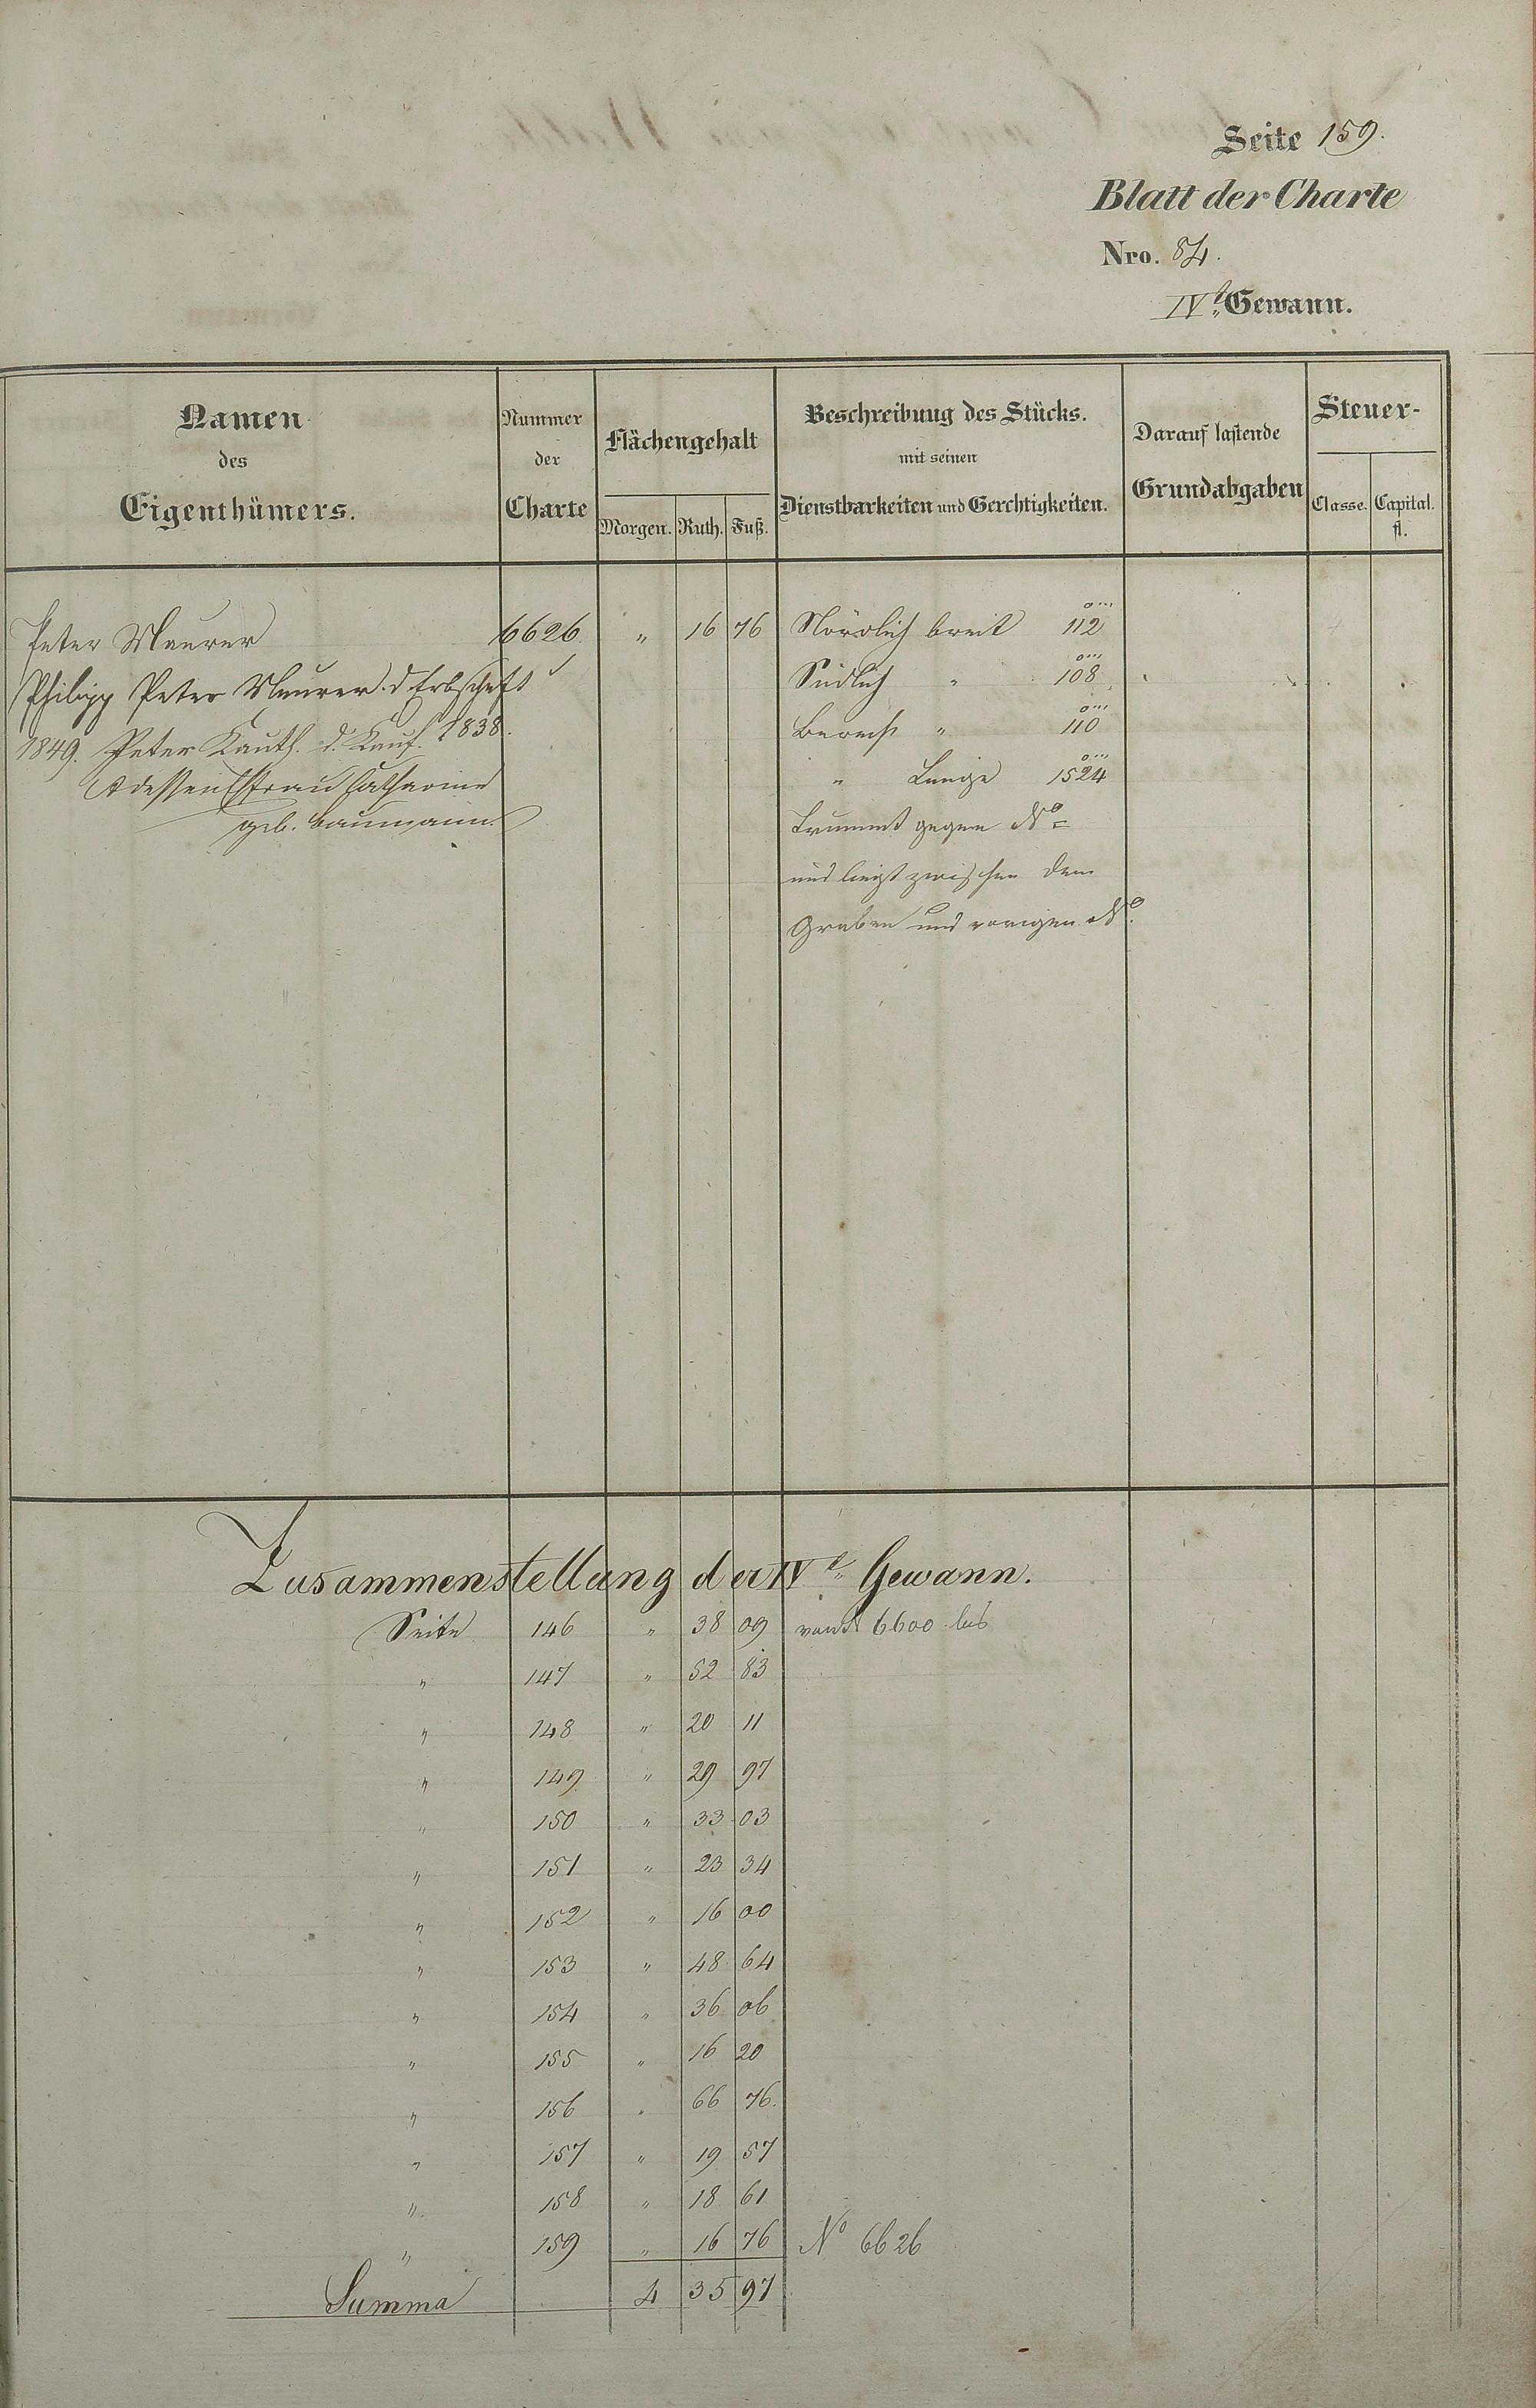 Seite 159.
Blatt der Charte
Nro. 84.
IVt. Gewann.
Namen des Eigenthümers.
Nummer der Charte
Flächengehalt
Morgen. Ruth. Fuß.
Beschreibung des Stücks.
mit seinen
Dienstbarkeiten und Gerechtigkeiten.
Darauf lastende
Grundabgaben
Steuer-
Classe. Capital.
fl.
Peter Maurer 6626 " 16 76 Nördlich breit 112
Philipp Peter Maurer d. Erbschaft Südlich " 108
1849. Peter Kauth. d. Kauf. 1838. Berech " 110
" Länge 1524
dessen Ehefrau Catharine
geb. Baumann
Krummt gegen No
und liegt zwischen dem
Graben und vorigen No.
Zusammenstellung der IVt. Gewann.
Seite 146 " 38 09 von N 6600 bis
" 147 " 52 83
" 148 " 20 11
" 149 " 29 97
" 150 " 33 03
" 151 " 23 34
" 152 " 16 00
" 153 " 48 64
" 154 " 36 06
" 155 " 16 20
" 156 " 66 76.
" 157 " 19 57
" 158 " 18 61
" 159 " 16 76 No 6626
Summa 4 35 97